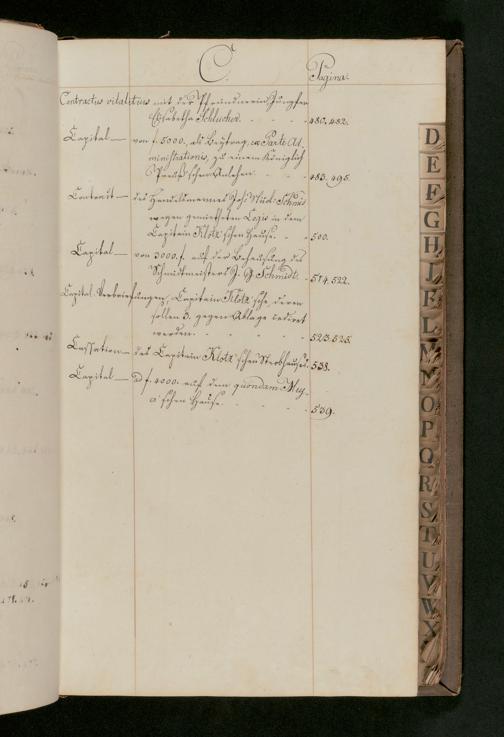 C.
Pagina.
Contractus vitalitius mit der Pfründnerin Jungfer
Elisabetha Schlucher. 480. 482.
Capital — von f. 5000. als Beytrag, ex Parte Ad-
ministrationis, zu einem Königlich
Preuß'schen Anlehen 483. 495.
Contract — des Handelsmannes Joh: Schmid
wegen gemietheten Logis in dem
Capitain Klotz'schen Hause. 500.
Capital — von 3000. f. auf der Behausung des
Schmidtmeisters J. G. Schmidt. 514. 522.
Capital-Verbriefungen, Capitain Klotz'sche, deren
sollen 3. gegen Ablage cedirt
werden 523. 525.
Cassation — des Capitain Klotz'schen Sterbhauses. 538.
Capital — ad f. 4000. auf dem quondam May-
schen Hause. 539.
D
E
F
G
H
I
K
L
M
N
O
P
Q
R
S
T
U
V
W
X